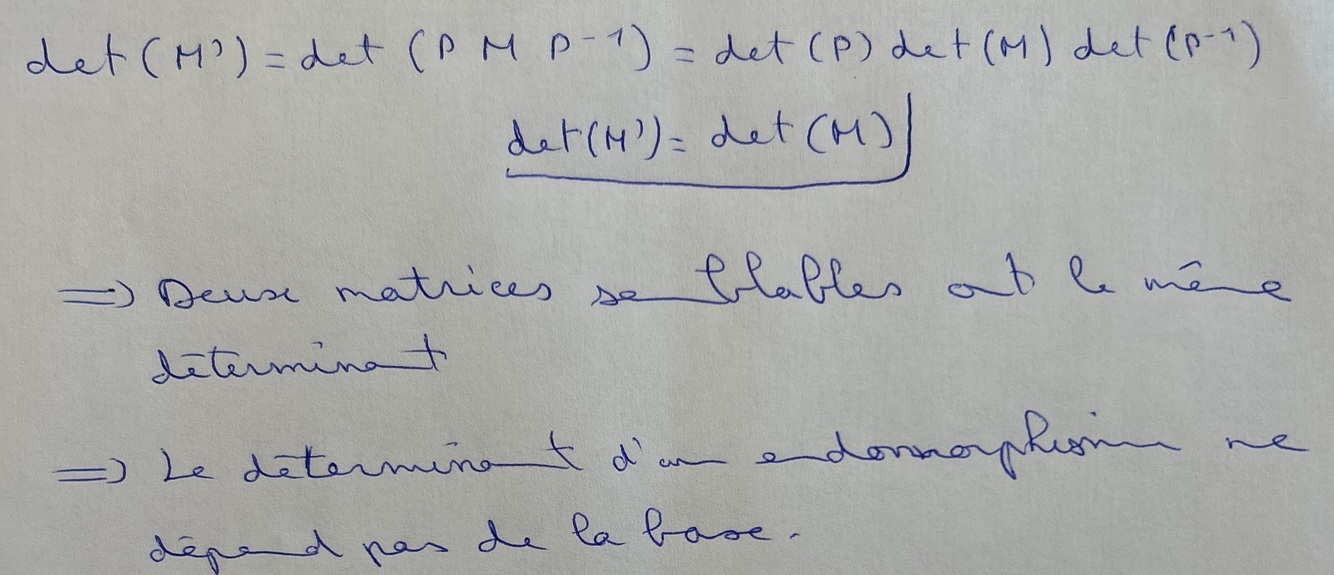 det(M') = det(P M P⁻¹) = det(P) det(M) det(P⁻¹)
det(M') = det(M)
=> Deux matrices semblables ont le même
déterminant
=> Le déterminant d'un endomorphisme ne
dépend pas de la base.